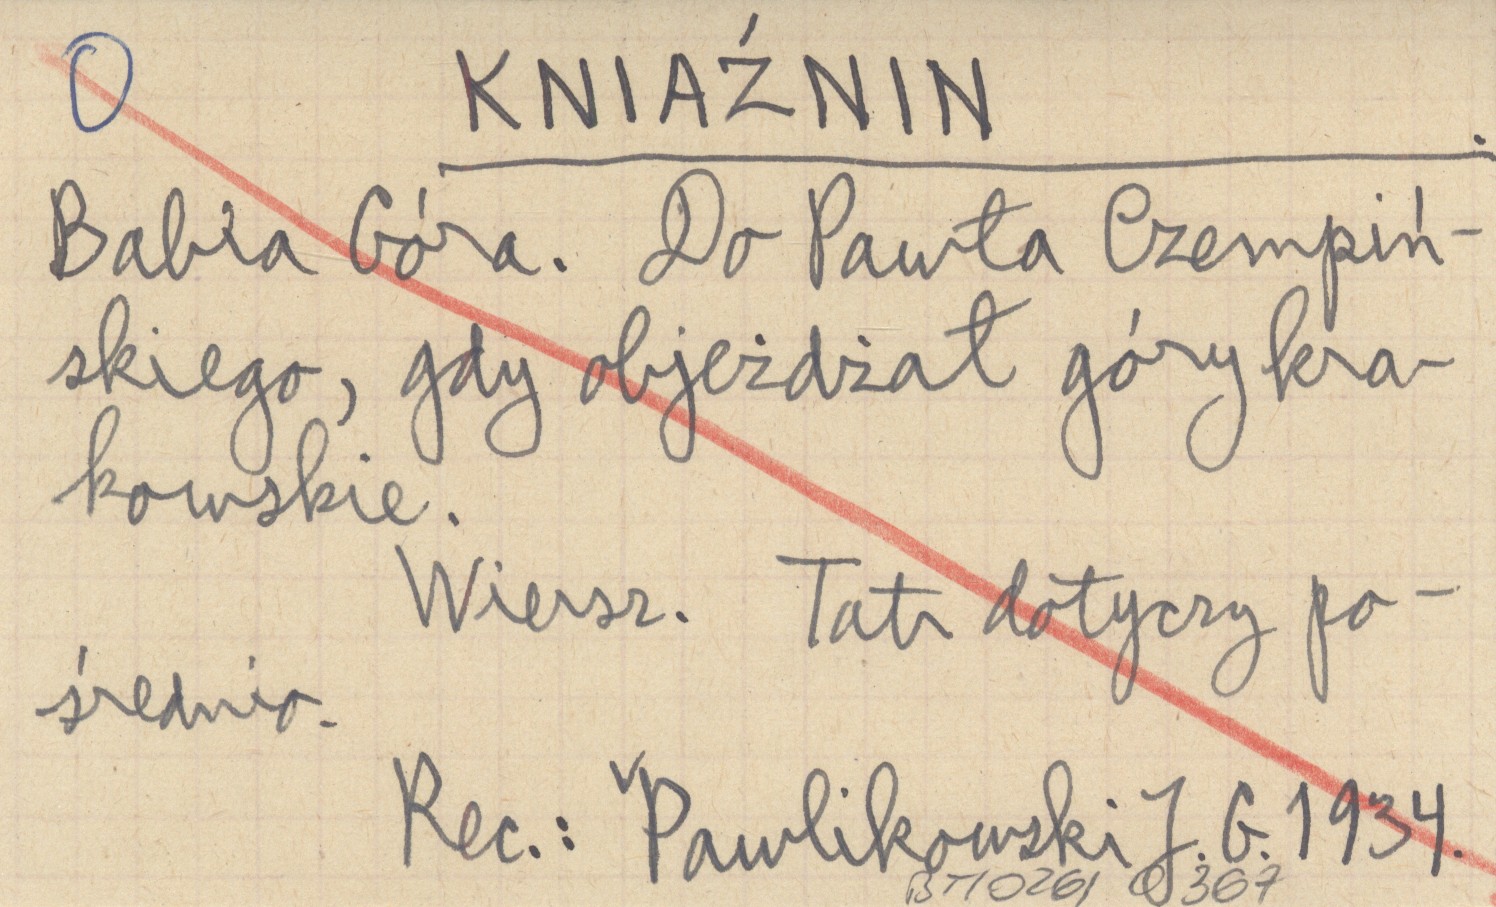 O
KNIAŹNIN
Babia Góra. Do Pawła Czempiń-
skiego, gdy objeżdżał góry kra-
kowskie.
Wiersz. Tatr dotyczy po-
średnio.
Rec.: Pawlikowski J. G. 1934.
367